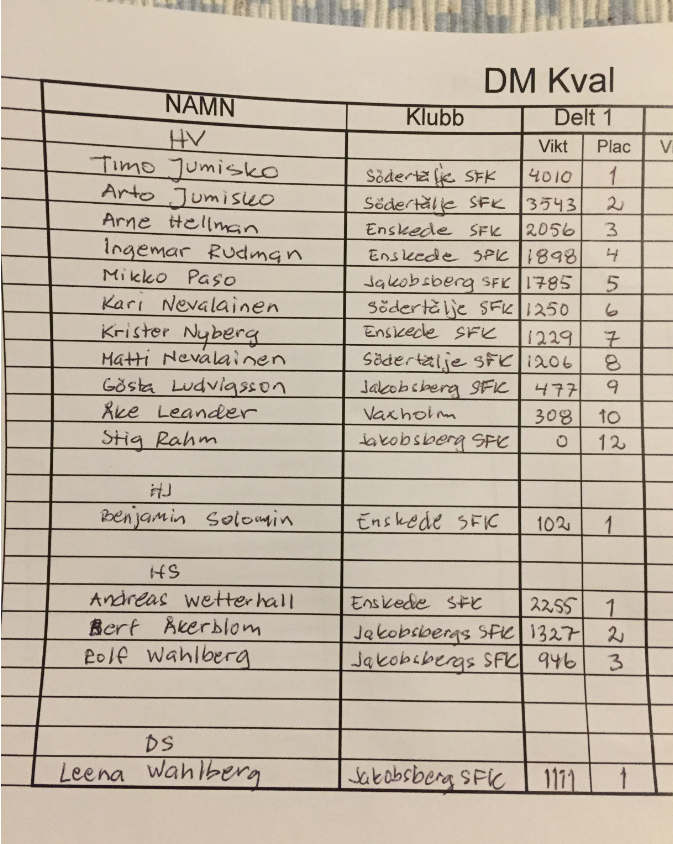 DM Kval
NAMN Klubb Delt 1
HV Vikt Plac
Timo Jumisko Södertälje SFK 4010 1
Arto Jumisko Södertälje SFK 3543 2
Arne Hellman Enskede SFK 2056 3
Ingemar Rudman Enskede SFK 1898 4
Mikko Paso Jakobsberg SFK 1785 5
Kari Nevalainen Södertälje SFK 1250 6
Krister Nyberg Enskede SFK 1229 7
Matti Nevalainen Södertälje SFK 1206 8
Gösta Ludvigsson Jakobsberg SFK 477 9
Åke Leander Vaxholm 308 10
Stig Rahm Jakobsberg SFK 0 12
HJ
Benjamin Solomin Enskede SFK 102 1
HS
Andreas Wetterhall Enskede SFK 2255 1
Bert Åkerblom Jakobsbergs SFK 1327 2
Rolf Wahlberg Jakobsbergs SFK 946 3
DS
Leena Wahlberg Jakobsberg SFK 1111 1